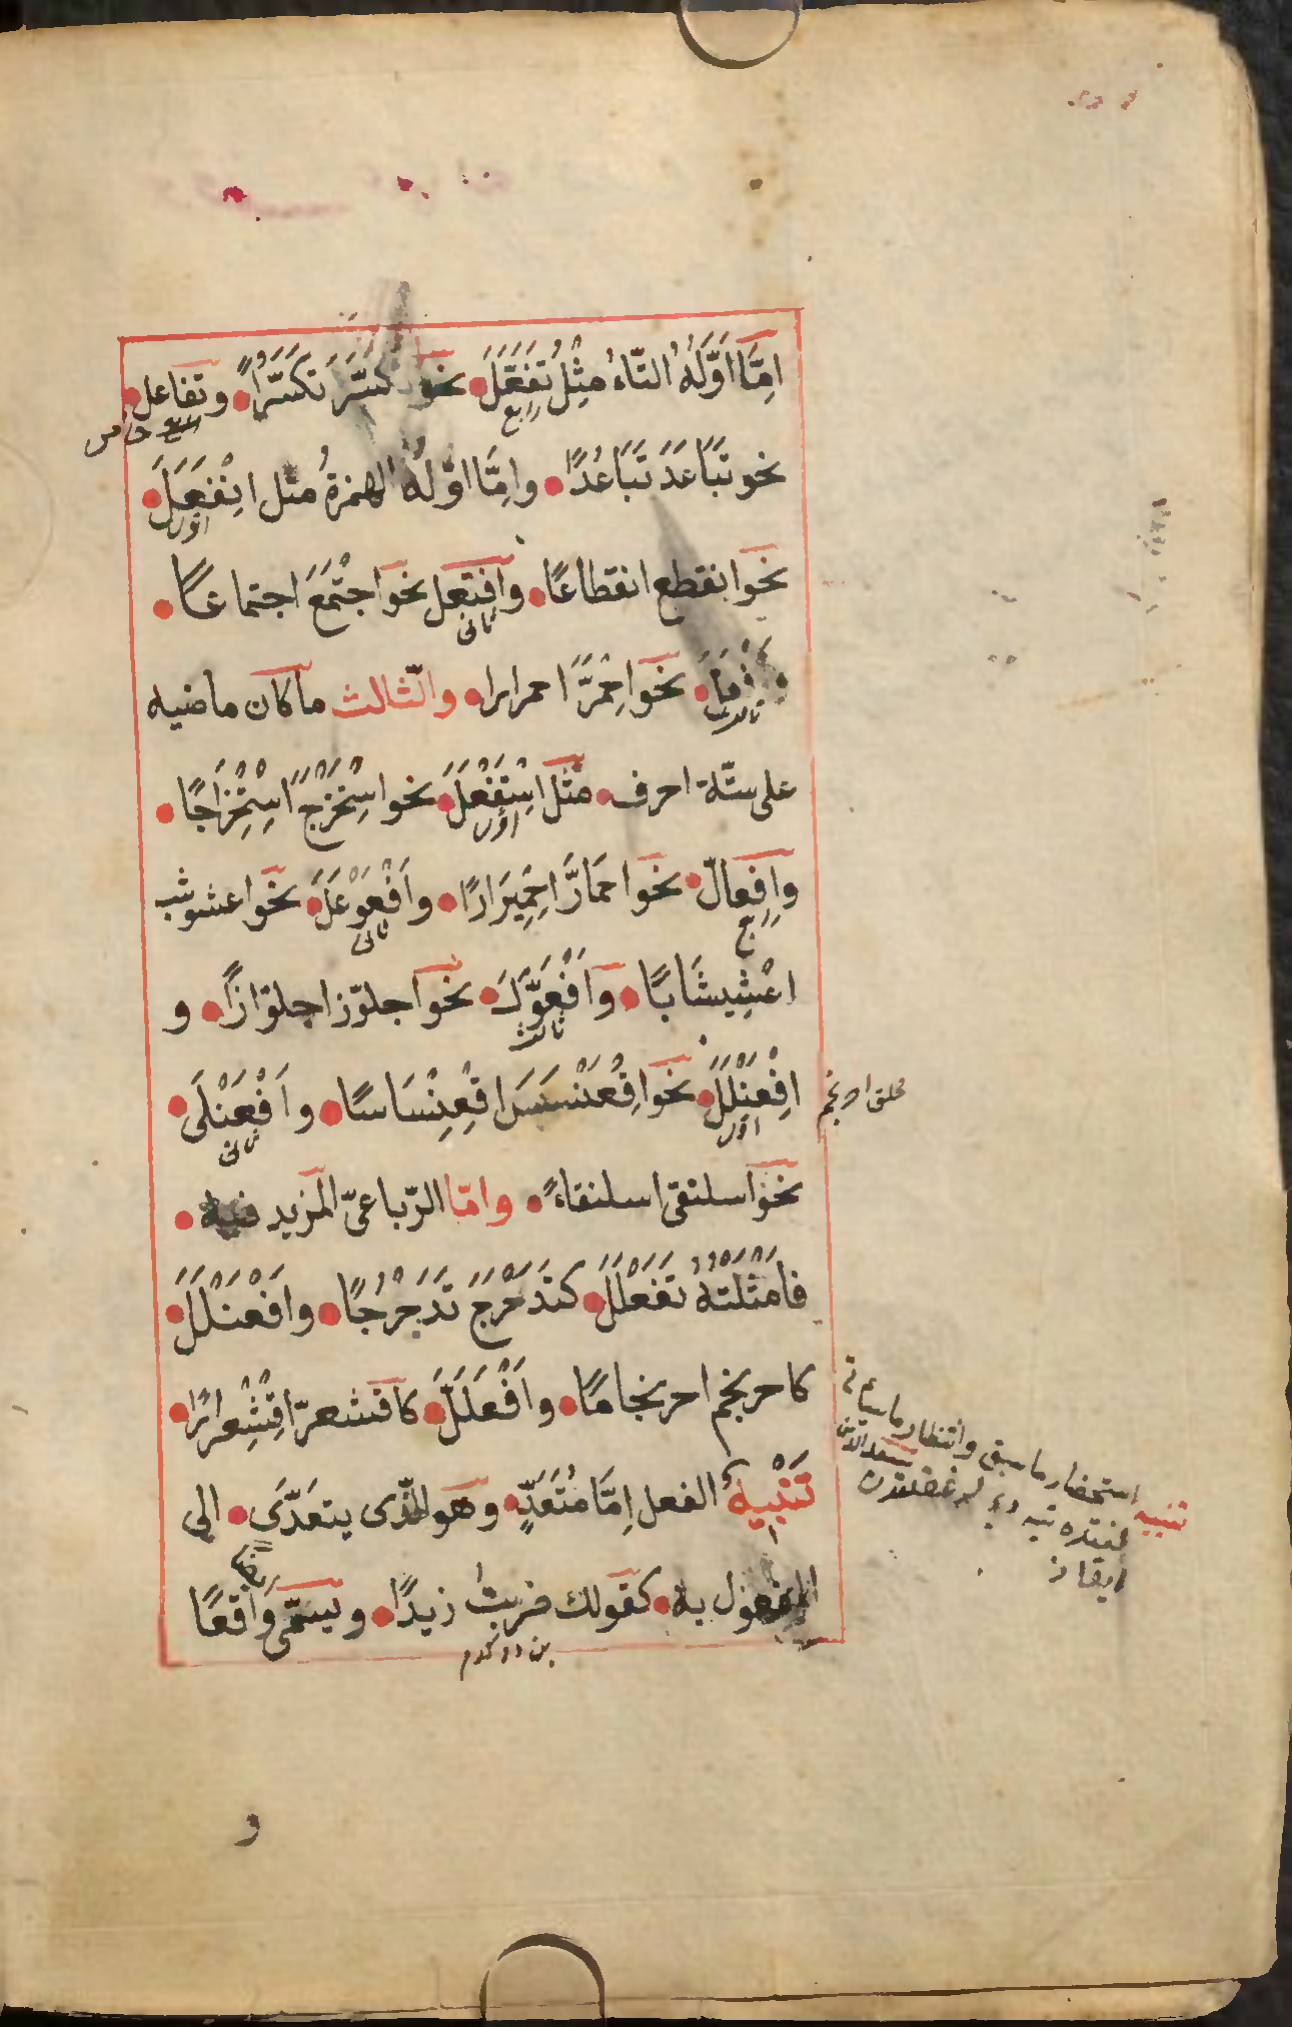 اِمَّا اَوَّلُهُ التّاءُ مِثْلُ تَفَعَّلَ نحو تكَسَّرَ تكَسُّرًا وتفاعل
رابع
خامس
نحو تَبَاعَدَ تَبَاعُدًا وامَّا اوّلُهُ الهمزةُ مثل اِنْفَعَلَ
اول
نحو انقطع انقطاعًا وافتعل نحو اجْتَمَعَ اجتماعًا
ثانى
نحو احْمَرَّ احمرارا والثّالث ما كان ماضيه
ثالث
على ستّة احرف مثل اسْتَفْعَلَ نحو اسْتَخْرَجَ اسْتِخْرَاجًا
اول
وافعالّ نحو احمَارَّ احْمِيرَارًا وافْعَوْعَلَ نحو اعشوشب
رابع
ثانى
اعْشِيشَابًا وافْعَوَّلَ نحو اجلوّز اجلوّازًا و
ثالث
افْعَنْلَلَ نحو اقْعَنْسَسَ اقْعِنْسَاسًا وافْعَنْلَى
اول
ثانى
نحو اسلنقى اسلنقاءً وامّا الرّباعىّ المزيد فيه
فامثلتهُ تَفَعْلَلَ كتَدَحْرَجَ تَدَحْرُجًا وافْعَنْلَلَ
كاحرنجم احرنجامًا وافْعَلَلَّ كاقشعرّ اقْشِعْرارًا
تَنْبِيهٌ الفعل اِمَّا مُتَعَدٍّ وهو الّذى يتعَدَّى الى
المفعول به كقولك ضربت زيدًا ويسمّى واقعًا
تنبيه استحضار ما سبق وانتظار ما سيأتى
سعد الدين
ايقاظ
و